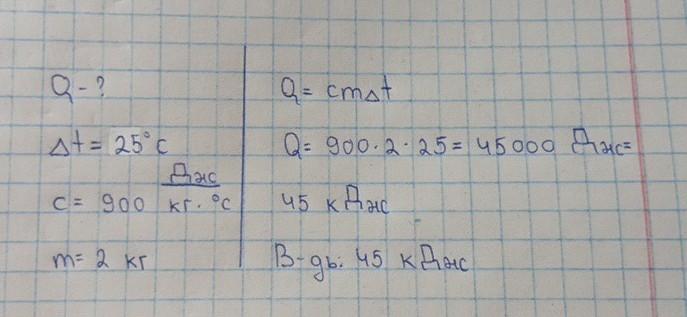 Q - ?
Δt = 25°C
c = 900 Дж/кг·°C
m = 2 кг
Q = cmΔt
Q = 900·2·25 = 45000 Дж =
45 кДж
В-дь: 45 кДж